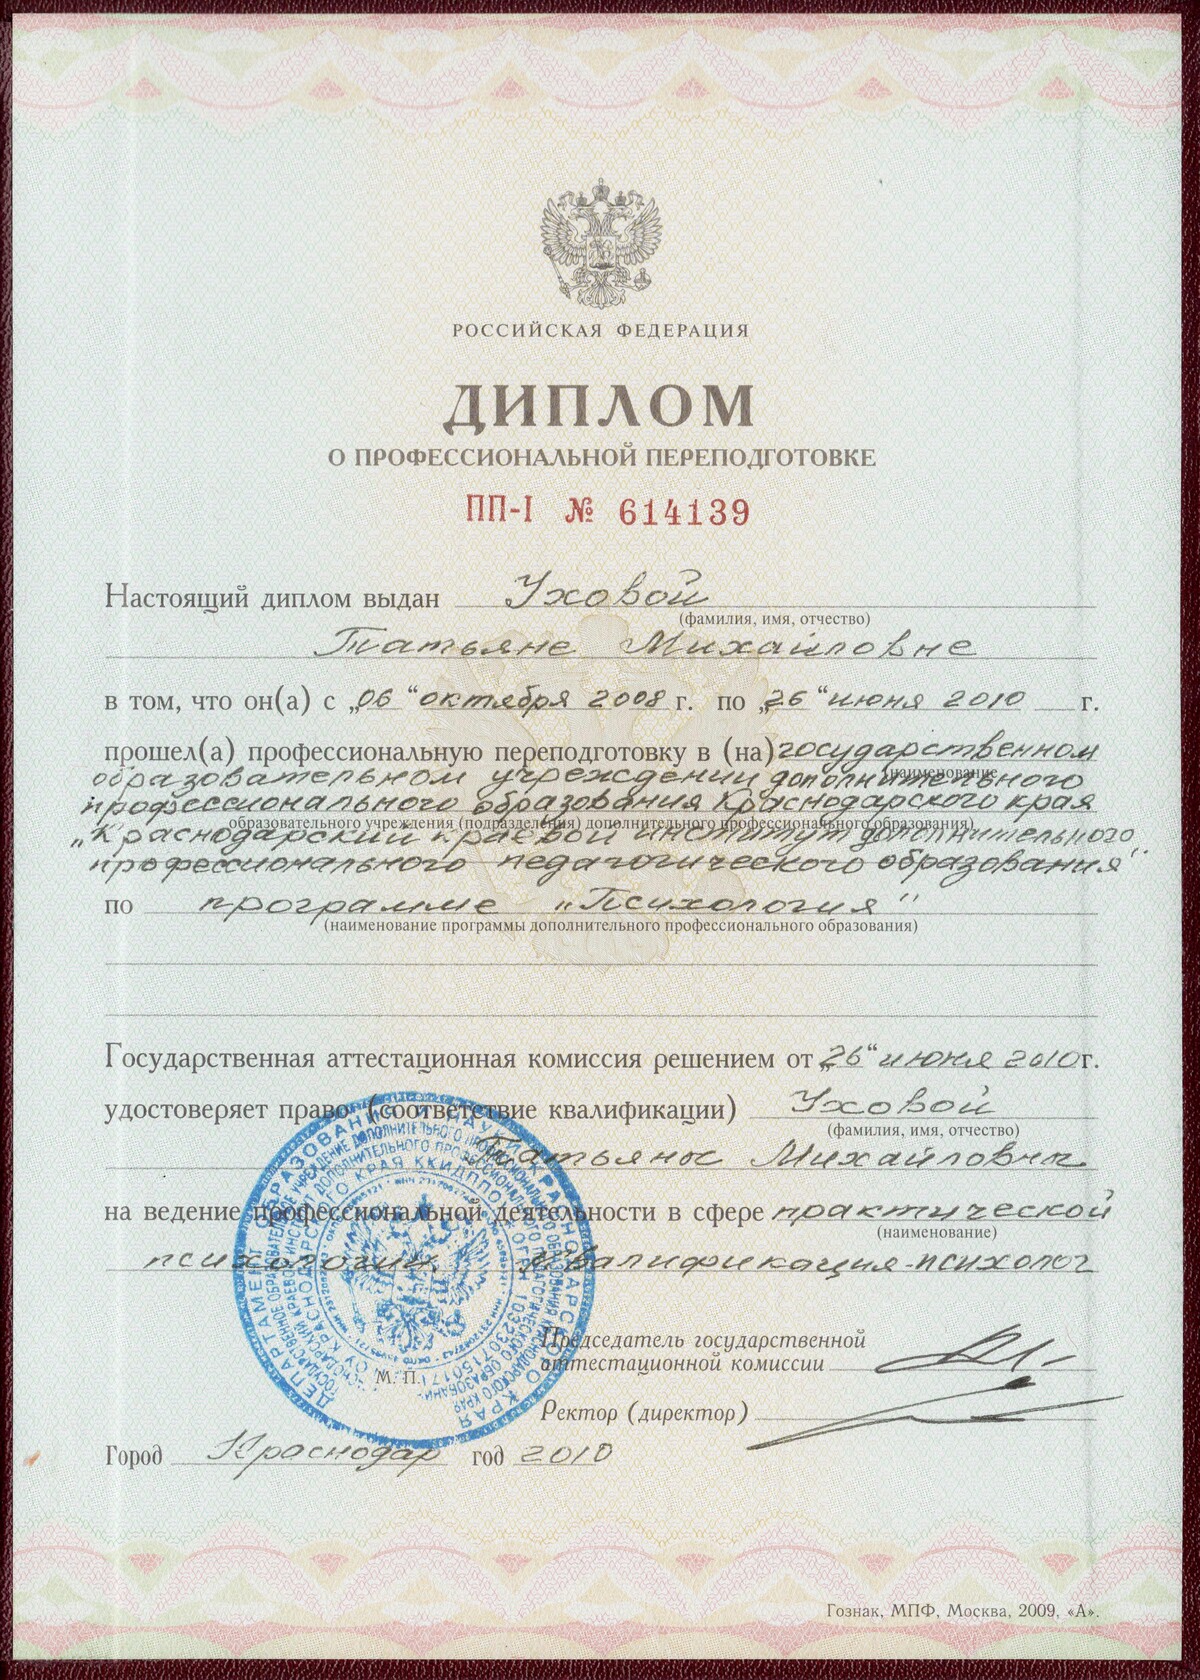 РОССИЙСКАЯ ФЕДЕРАЦИЯ
ДИПЛОМ
О ПРОФЕССИОНАЛЬНОЙ ПЕРЕПОДГОТОВКЕ
ПП-I № 614139
Настоящий диплом выдан Уховой
(фамилия, имя, отчество)
Татьяне Михайловне
в том, что он(а) с „06“ октября 2008 г. по „26“ июня 2010 г.
прошел(а) профессиональную переподготовку в (на) государственном
(наименование
образовательном учреждении дополнительного
профессионального образования Краснодарского края
образовательного учреждения (подразделения) дополнительного профессионального образования)
„Краснодарский краевой институт дополнительного
профессионального педагогического образования"
по программе „Психология"
(наименование программы дополнительного профессионального образования)
Государственная аттестационная комиссия решением от „26“ июня 2010 г.
удостоверяет право (соответствие квалификации) Уховой
(фамилия, имя, отчество)
Татьяны Михайловны
на ведение профессиональной деятельности в сфере практической
(наименование)
психологии квалификация-психолог
Председатель государственной
аттестационной комиссии
М. П.
Ректор (директор)
Город Краснодар год 2010
Гознак, МПФ, Москва, 2009, «А».